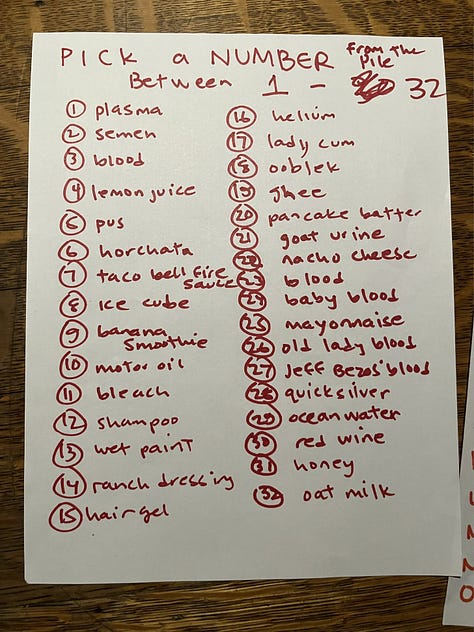 PICK a NUMBER From the Pile
Between 1 - 32
1 plasma
2 semen
3 blood
4 lemon juice
5 pus
6 horchata
7 taco bell fire
sauce
8 ice cube
9 banana
smoothie
10 motor oil
11 bleach
12 shampoo
13 wet paint
14 ranch dressing
15 hair gel
16 helium
17 lady cum
18 ooblek
19 ghee
20 pancake batter
21 goat urine
22 nacho cheese
23 blood
24 baby blood
25 mayonnaise
26 old lady blood
27 Jeff Bezos' blood
28 quicksilver
29 ocean water
30 red wine
31 honey
32 oat milk